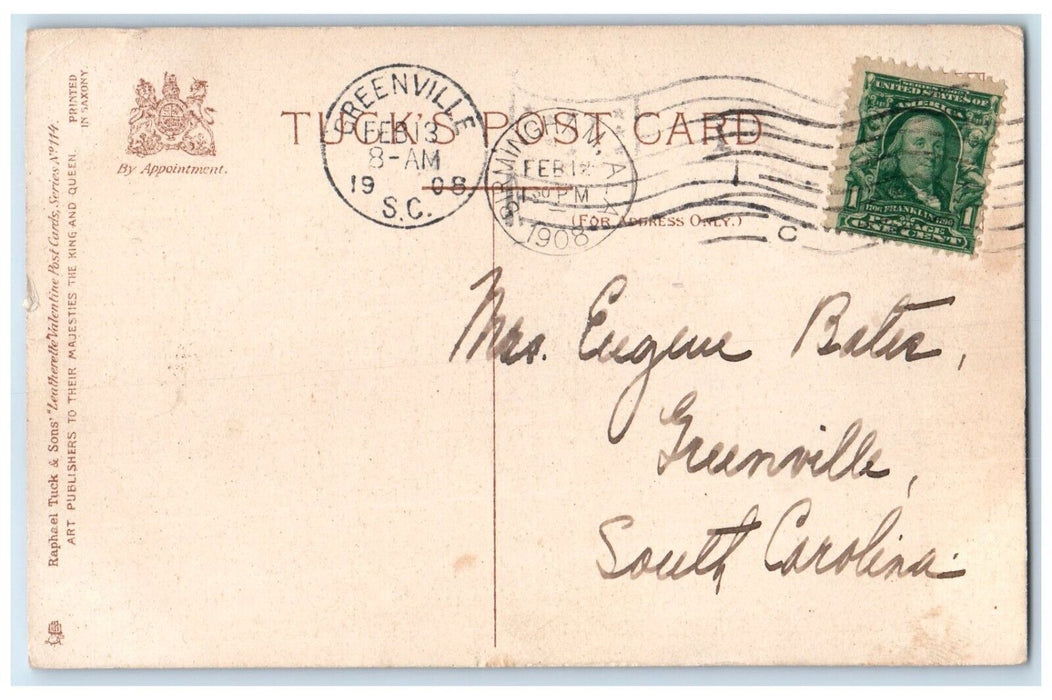 TUCK'S POST CARD
(FOR ADDRESS ONLY.)
By Appointment.
PRINTED
IN SAXONY
Raphael Tuck & Sons' "Leatherette" Valentine Post Cards, Series Nº 114.
ART PUBLISHERS TO THEIR MAJESTIES THE KING AND QUEEN.
GREENVILLE
FEB 13
8-AM
19 08
S.C.
BIRMINGHAM, ALA
FEB 12
PM
1908
C
UNITED STATES OF
AMERICA
1 FRANKLIN 1
POSTAGE
ONE CENT
Mrs. Eugene Bates,
Greenville,
South Carolina.